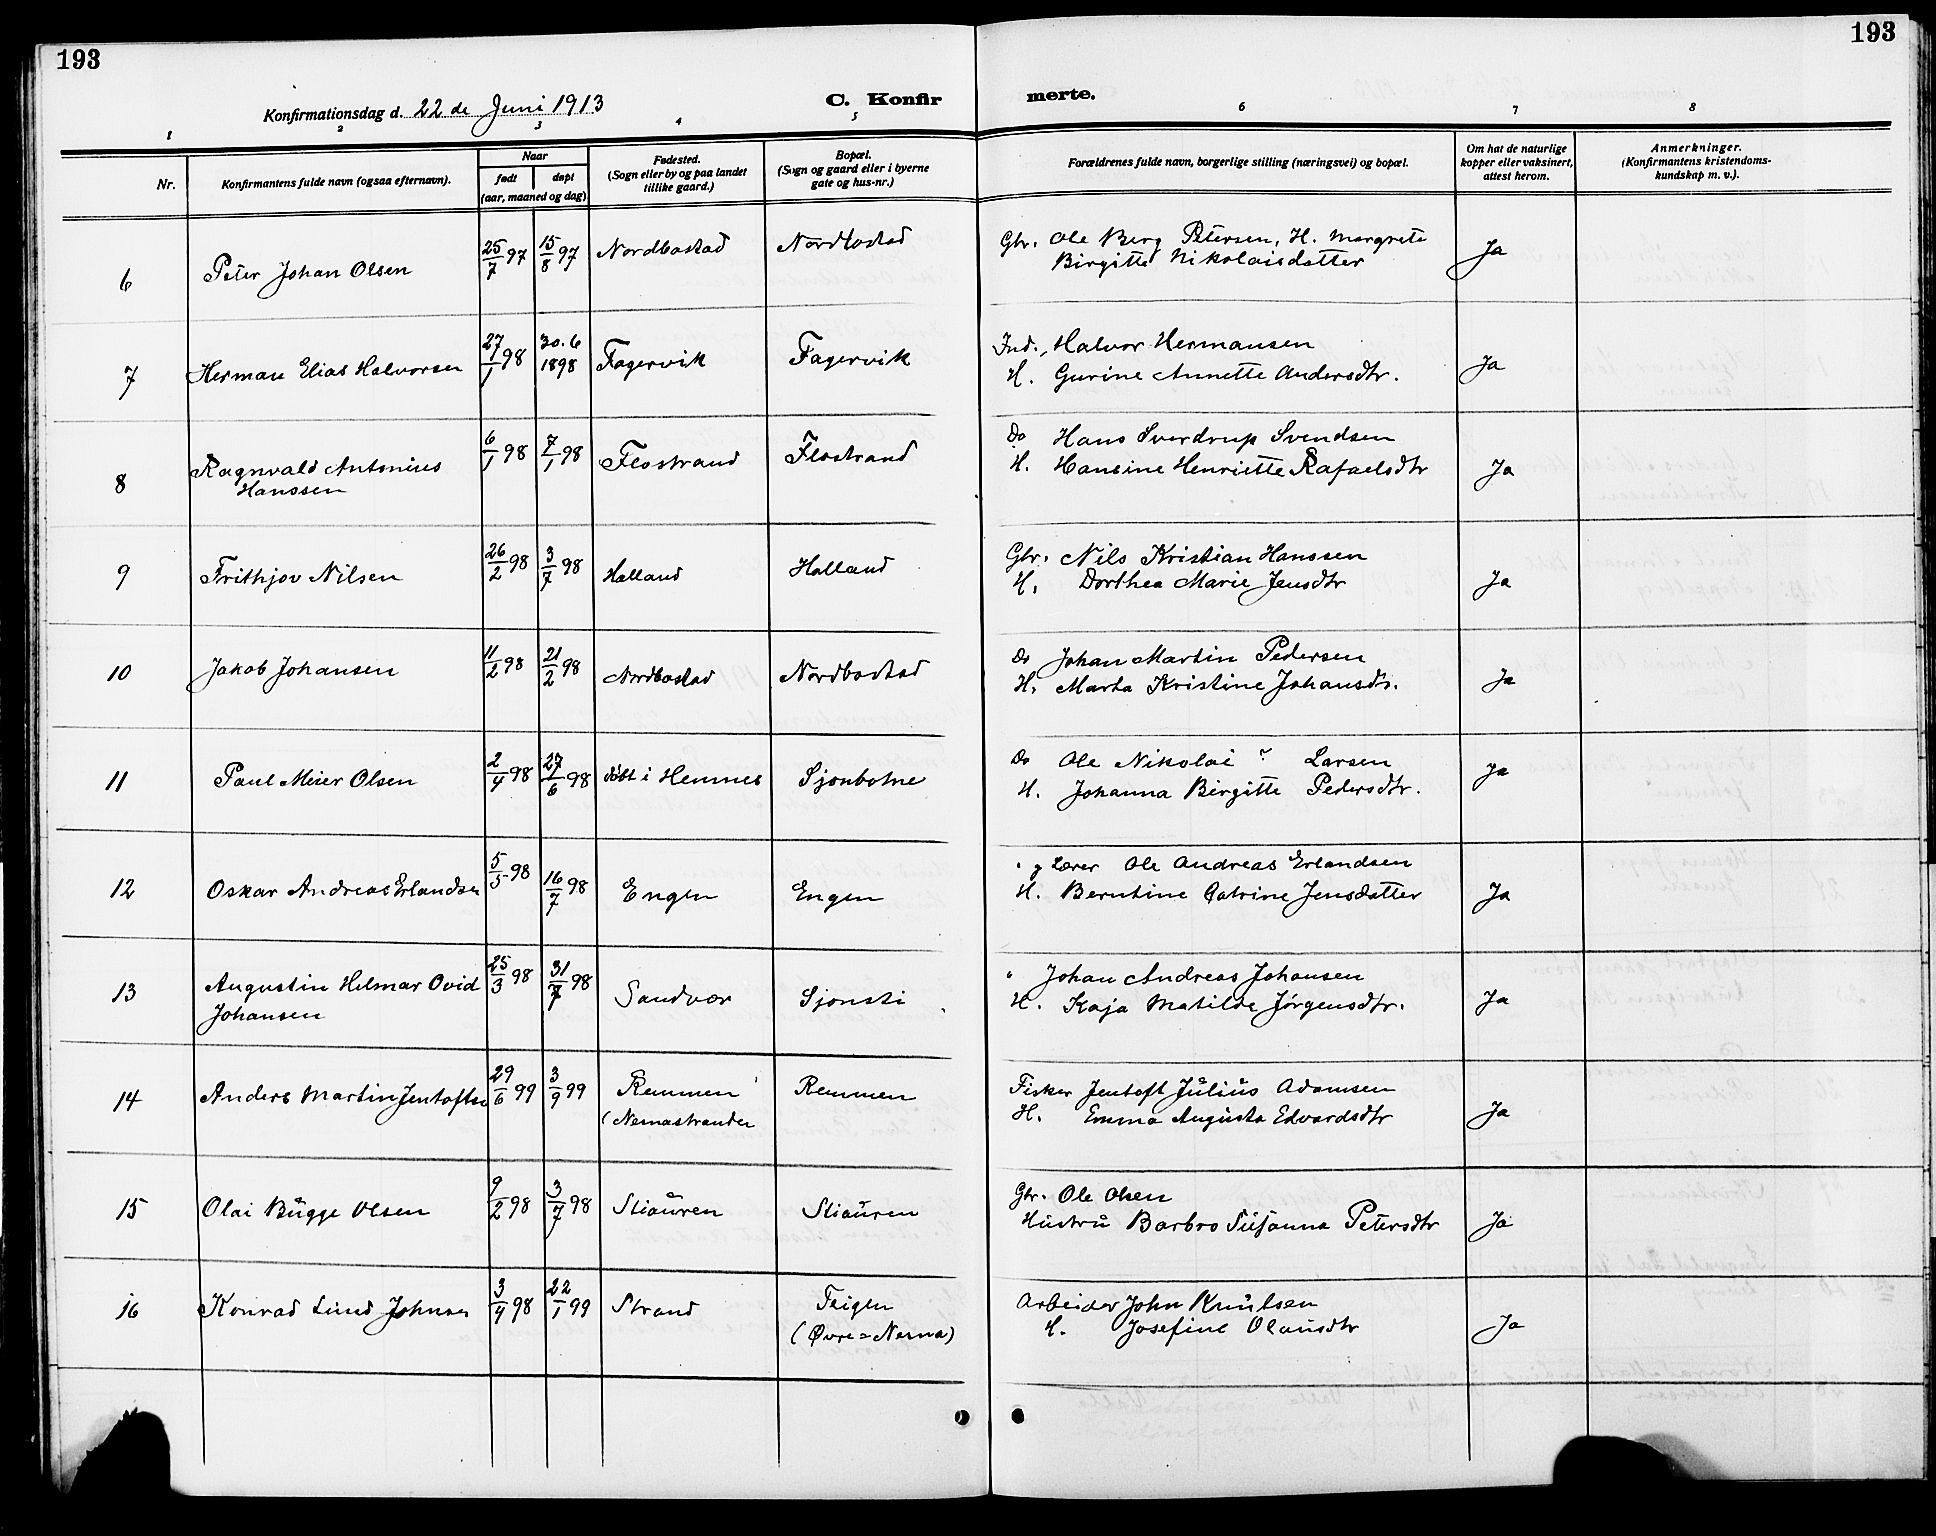 193
193
Konfirmationsdag d. 22 de Juni 1913
C. Konfir
merte.
1 2 3 4 5 6 7 8
Nr.
Konfirmantens fulde navn (ogsaa efternavn).
Naar
født døpt
(aar, maaned og dag)
Fødested.
(Sogn eller by og paa landet
tillike gaard.)
Bopæl.
(Sogn og gaard eller i byerne
gate og hus-nr.)
Forældrenes fulde navn, borgerlige stilling (næringsvei) og bopæl.
Om hat de naturlige
kopper eller vaksinert,
attest herom.
Anmerkninger.
(Konfirmantens kristendoms-
kundskap m. v.).
6 Peter Johan Olsen 25/7 97 15/8 97 Nordbostad Nordbostad Gbr. Ole Berg Petersen, H. Margrete
Birgitte Nikolaisdatter Ja
7 Herman Elias Halvorsen 27/1 98 30.6 1898 Fagervik Fagervik Ind., Halvor Hermansen
H. Gurine Annette Andersdtr. Ja
8 Ragnvald Antonius 6/1 98 7/1 98 Flostrand Flostrand Do Hans Sverdrup Svendsen
Hanssen H. Hansine Henriette Rafaelsdtr Ja
9 Frithjov Nilsen 26/2 98 3/7 98 Halland Halland Gbr. Nils Kristian Hanssen
H. Dorthea Marie Jensdtr Ja
10 Jakob Johansen 11/2 98 21/2 98 Nordbostad Nordbostad Do Johan Martin Pedersen
H. Marta Kristine Johansdtr. Ja
11 Paul Meier Olsen 2/4 98 27/6 98 født i Hemnes Sjonbotne Do Ole Nikolai Larsen
H. Johanna Birgitte Pedersdtr. Ja
12 Oskar Andreas Erlandsen 5/5 98 16/7 98 Engen Engen " g Lærer Ole Andreas Erlandsen
H. Berntine Catrine Jensdatter Ja
13 Augustin Helmar Ovid 25/3 98 31/7 98 Sandvær Sjonsti " Johan Andreas Johansen
Johansen H. Kaja Matilde Jørgensdtr. Ja
14 Anders Martin Jentoftsen 29/6 99 3/9 99 Remmen Remmen Fisker Jentoft Julius Adamsen
(Nemastranden H. Emma Augusta Edvardsdtr Ja
15 Olai Bugge Olsen 9/2 98 3/7 98 Stiauren Stiauren Gbr. Ole Olsen
Hustru Barbro Susanna Petersdtr Ja
16 Konrad Lund Johnsen 3/4 98 22/1 99 Strand Teigen Arbeider John Knutsen
(Øvre=Nerna) H. Josefine Olausdtr Ja